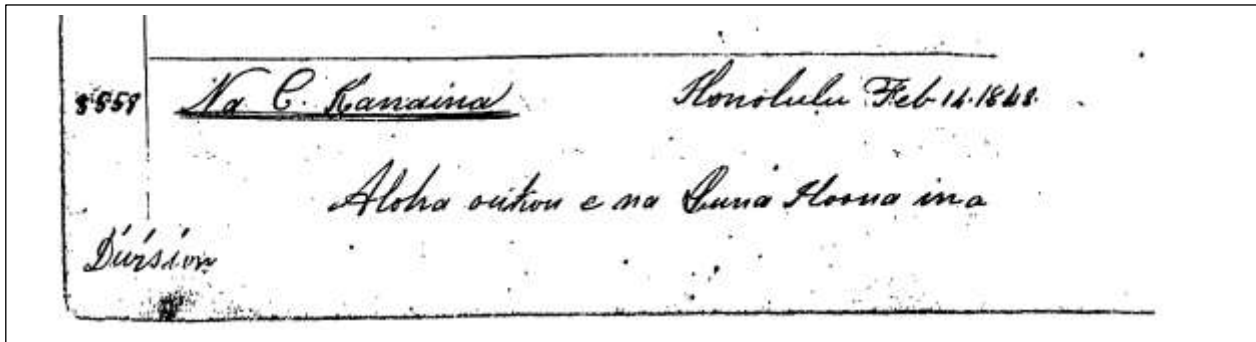 8559 Na C. Kanaina Honolulu Feb 14. 1848.
Aloha oukou e na Luna Hoona ina
Division